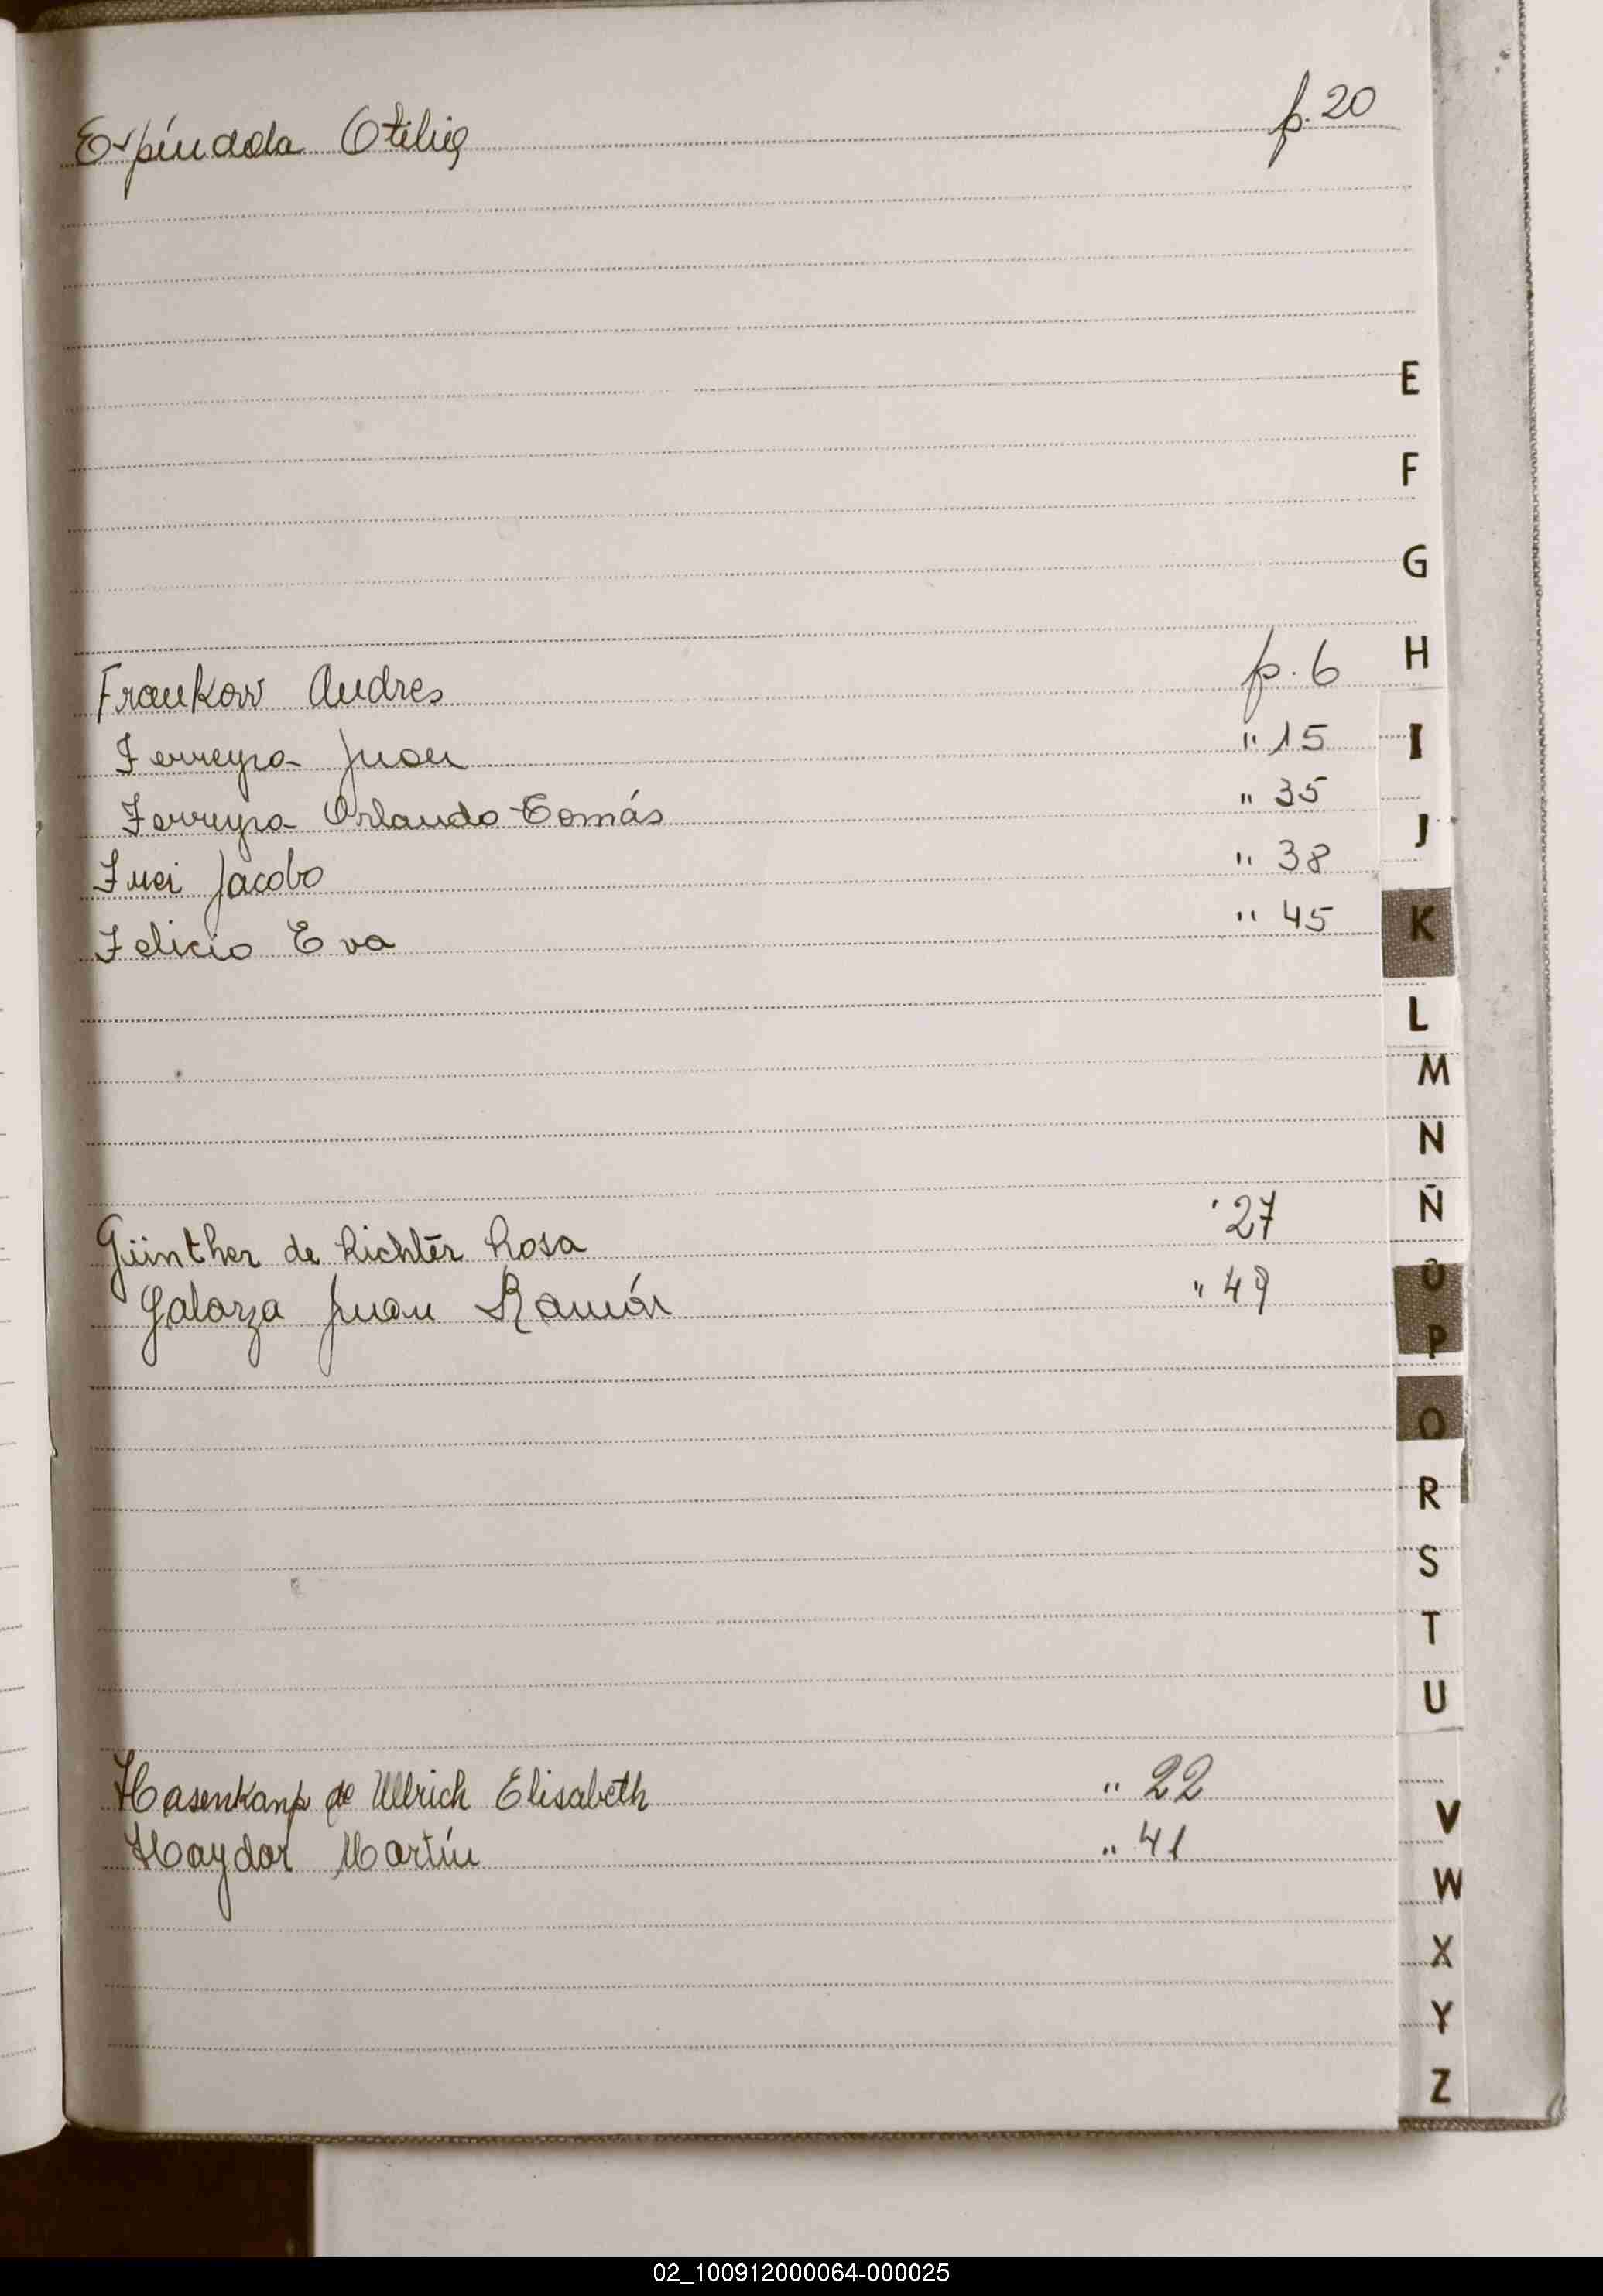 Espíndola Otilia p. 20
E
F
G
H
Frankow Andres p. 6
I
Ferreyra Juan " 15
Ferreyra Orlando Tomás " 35
J
Frei Jacobo " 38
Felicio Eva " 45
K
L
M
N
Ñ
Günther de Richter Rosa " 27
Galarza Juan Ramón " 49
O
P
Q
R
S
T
U
Hasenkamp de Ullrich Elisabeth " 22
V
Haydar Martín " 41
W
X
Y
Z
02_100912000064-000025